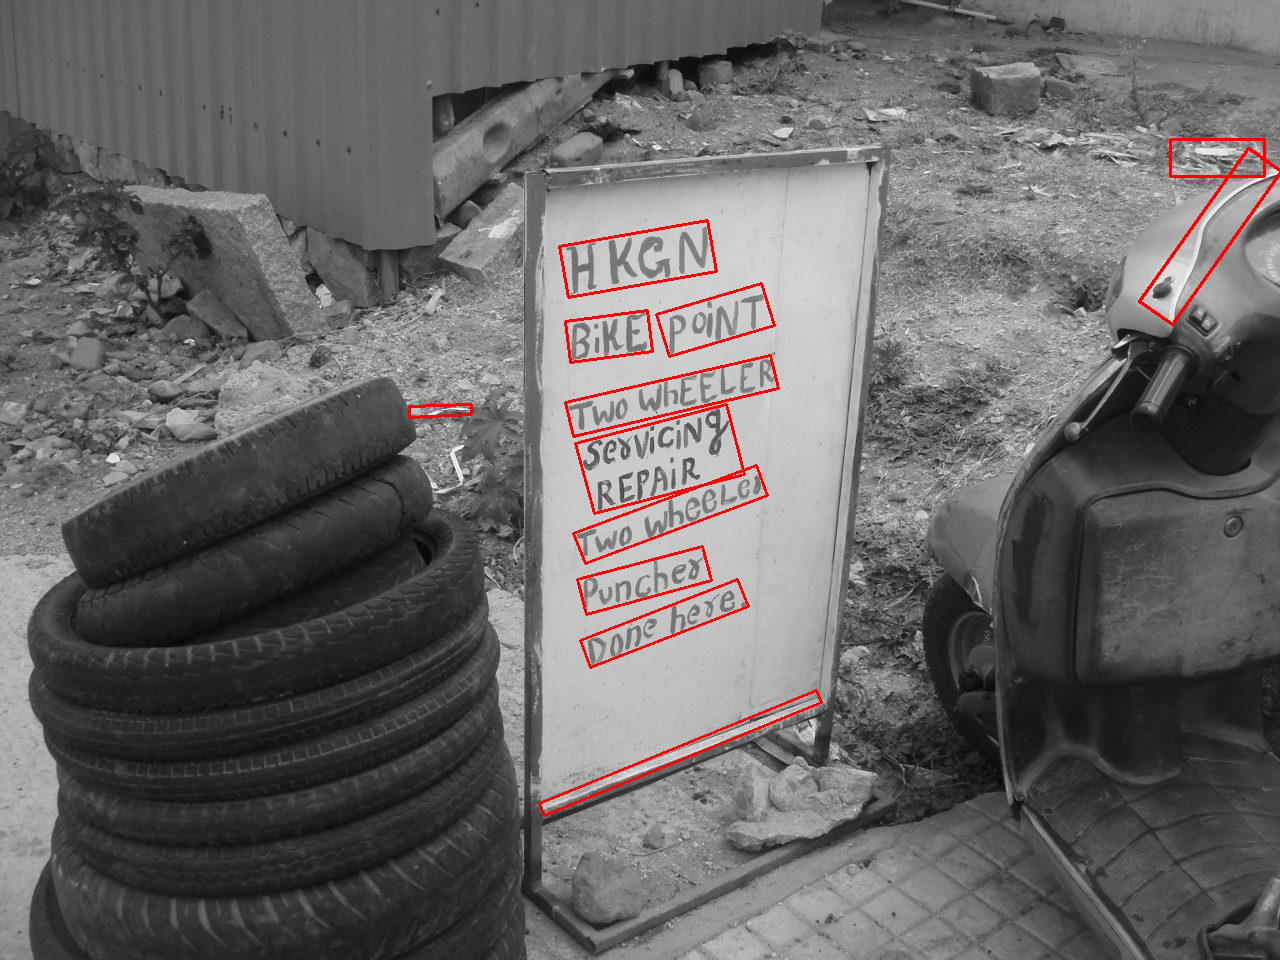 HKGN
BiKE POiNT
Two WhEELER
Servicing
REPAiR
Two Wheeler
Puncher
Done here.